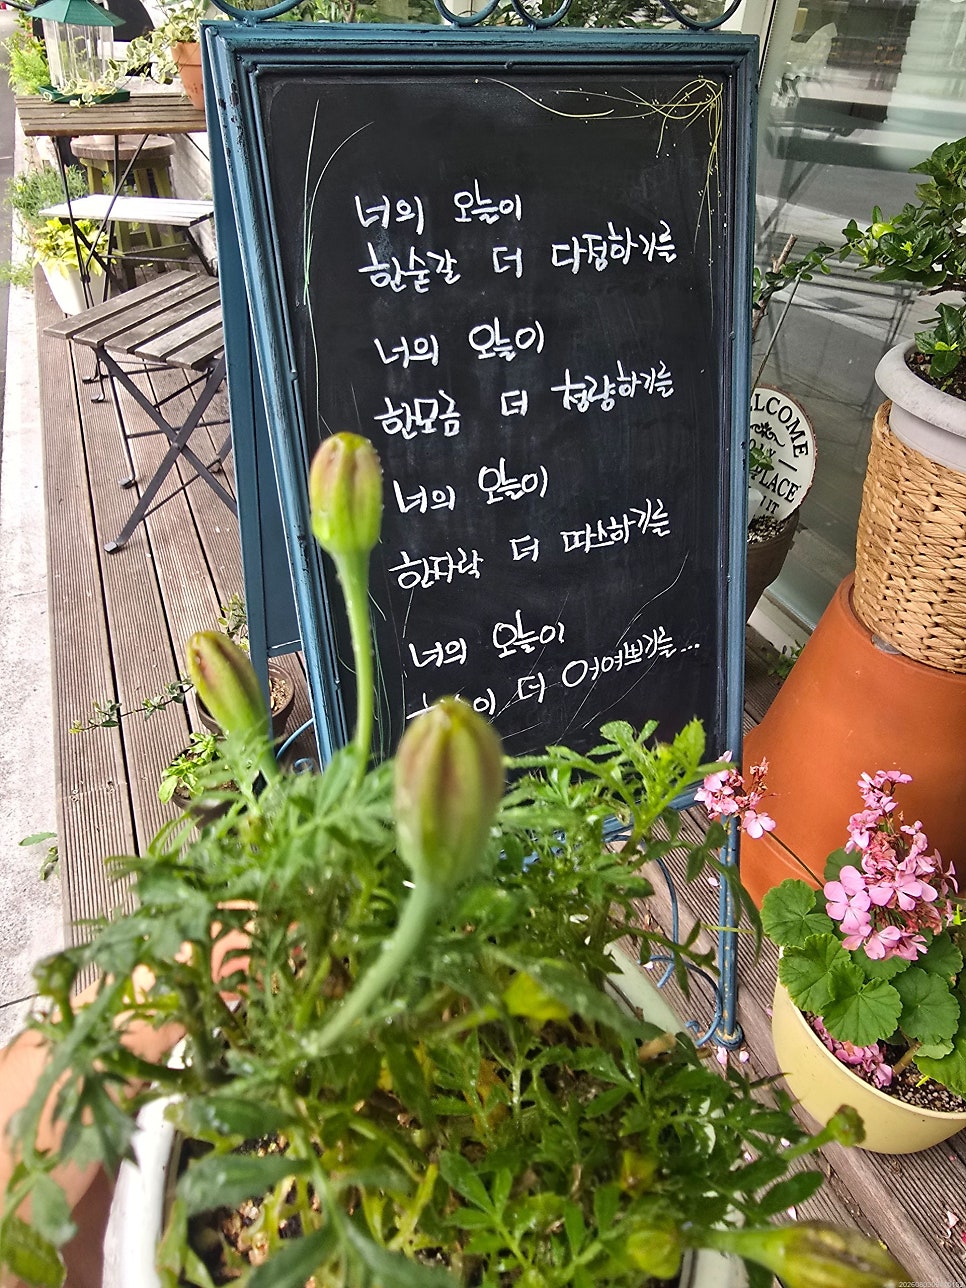 너의 오늘이
한순갈 더 다정하기를
너의 오늘이
한모금 더 청량하기를
너의 오늘이
한자락 더 따스하기를
너의 오늘이
더 어여쁘기를...
WELCOME
PLACE
IT